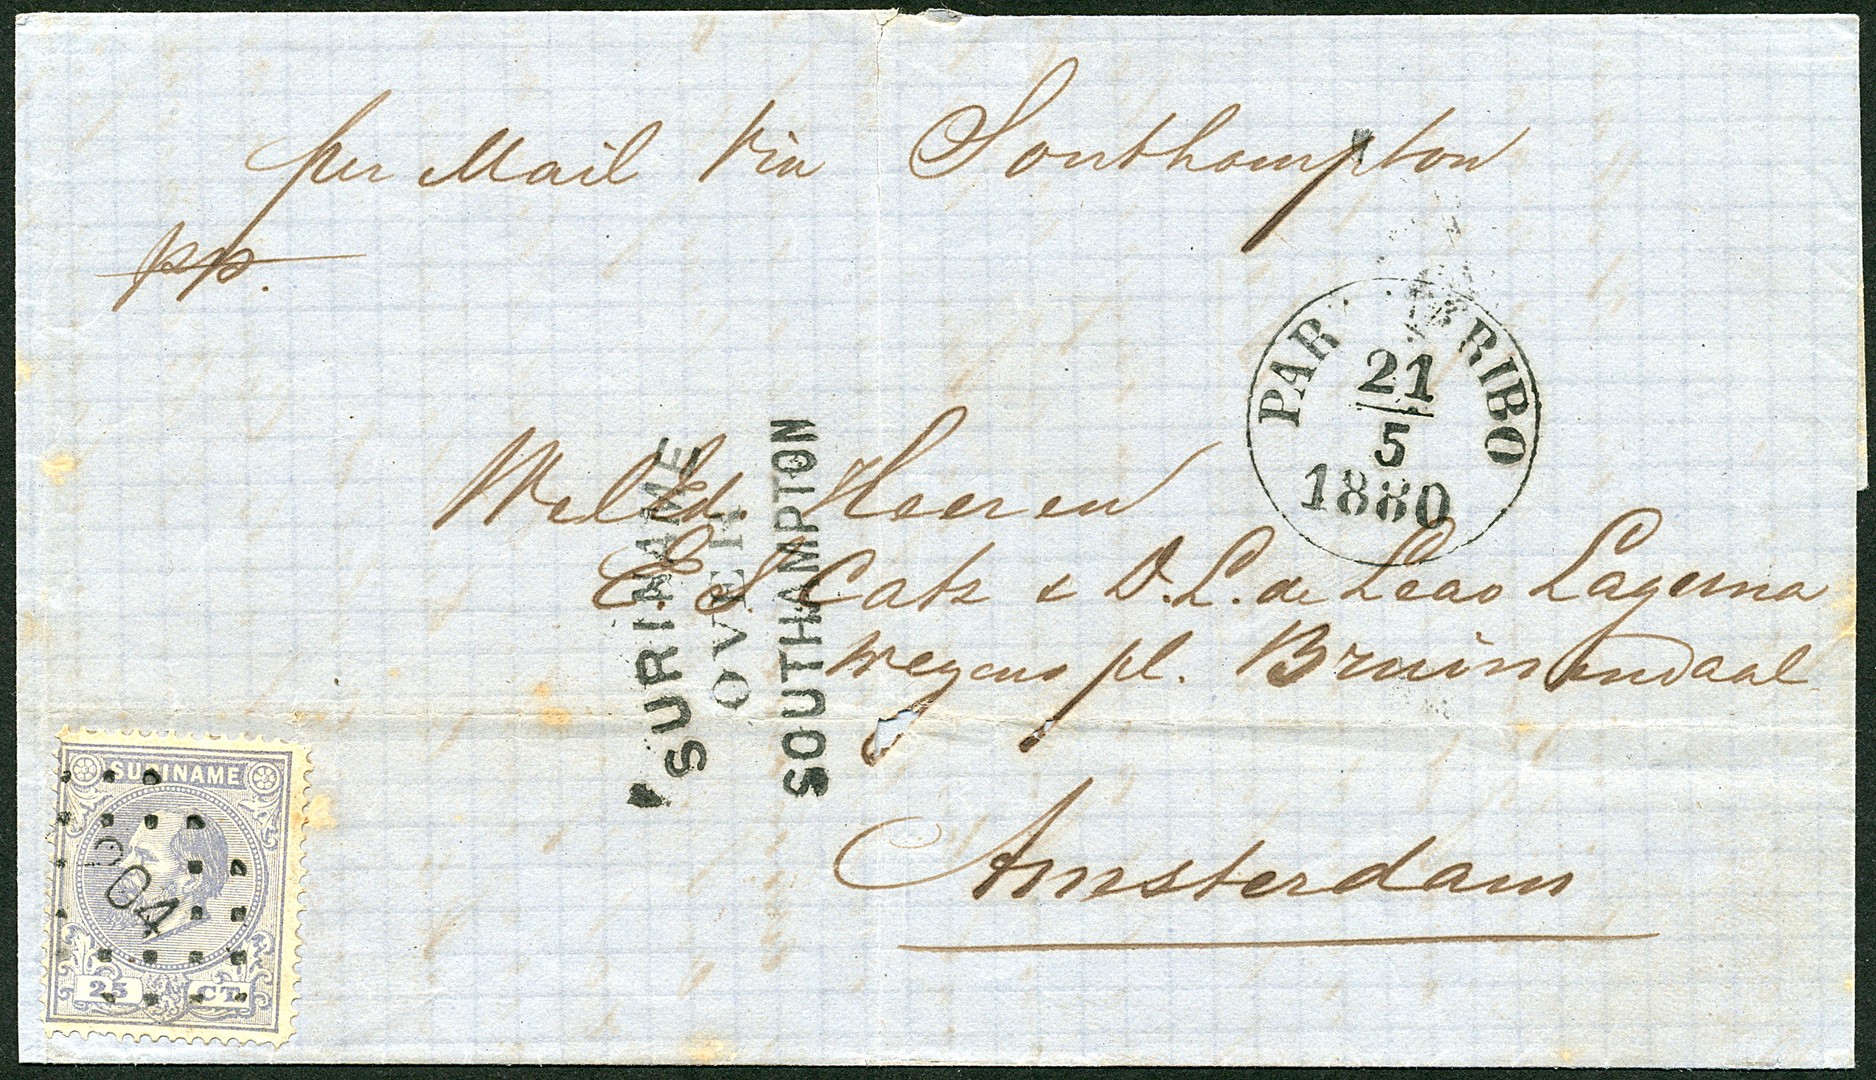 per Mail via Southampton
pp.
PAR ERIBO
21
5
1880
SURINAME
OVER
SOUTHAMPTON
WelEd. Heeren
E. S. Cats & D. L. de Leao Laguna
wegens pl. Bruinendaal
Amsterdam
SURINAME
904
25 CT